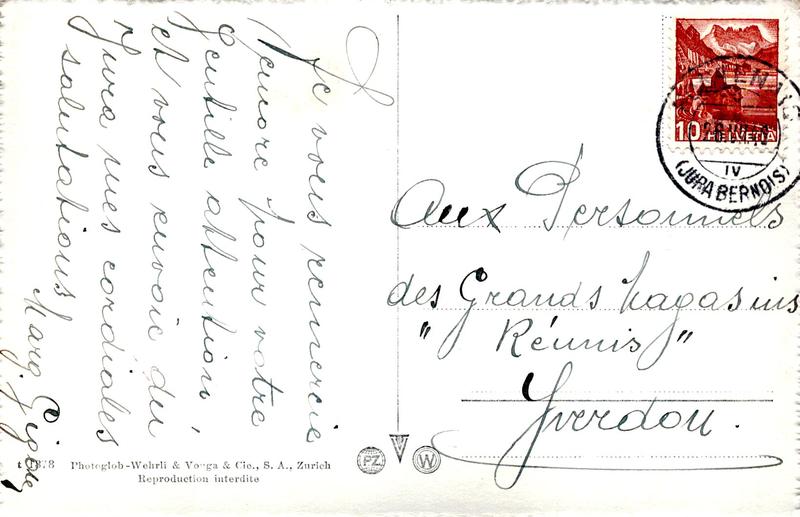 Je vous remercie
encore pour votre
gentille attention,
et vous envoie du
Jura mes cordiales
salutations
Marg.
Aux Personnels
des Grands Magasins
"Réunis"
Yverdon.
10 HELVETIA
IV
(JURA BERNOIS)
t 1878 Photoglob-Wehrli & Vouga & Cie., S. A., Zurich
Reproduction interdite
PZ
W